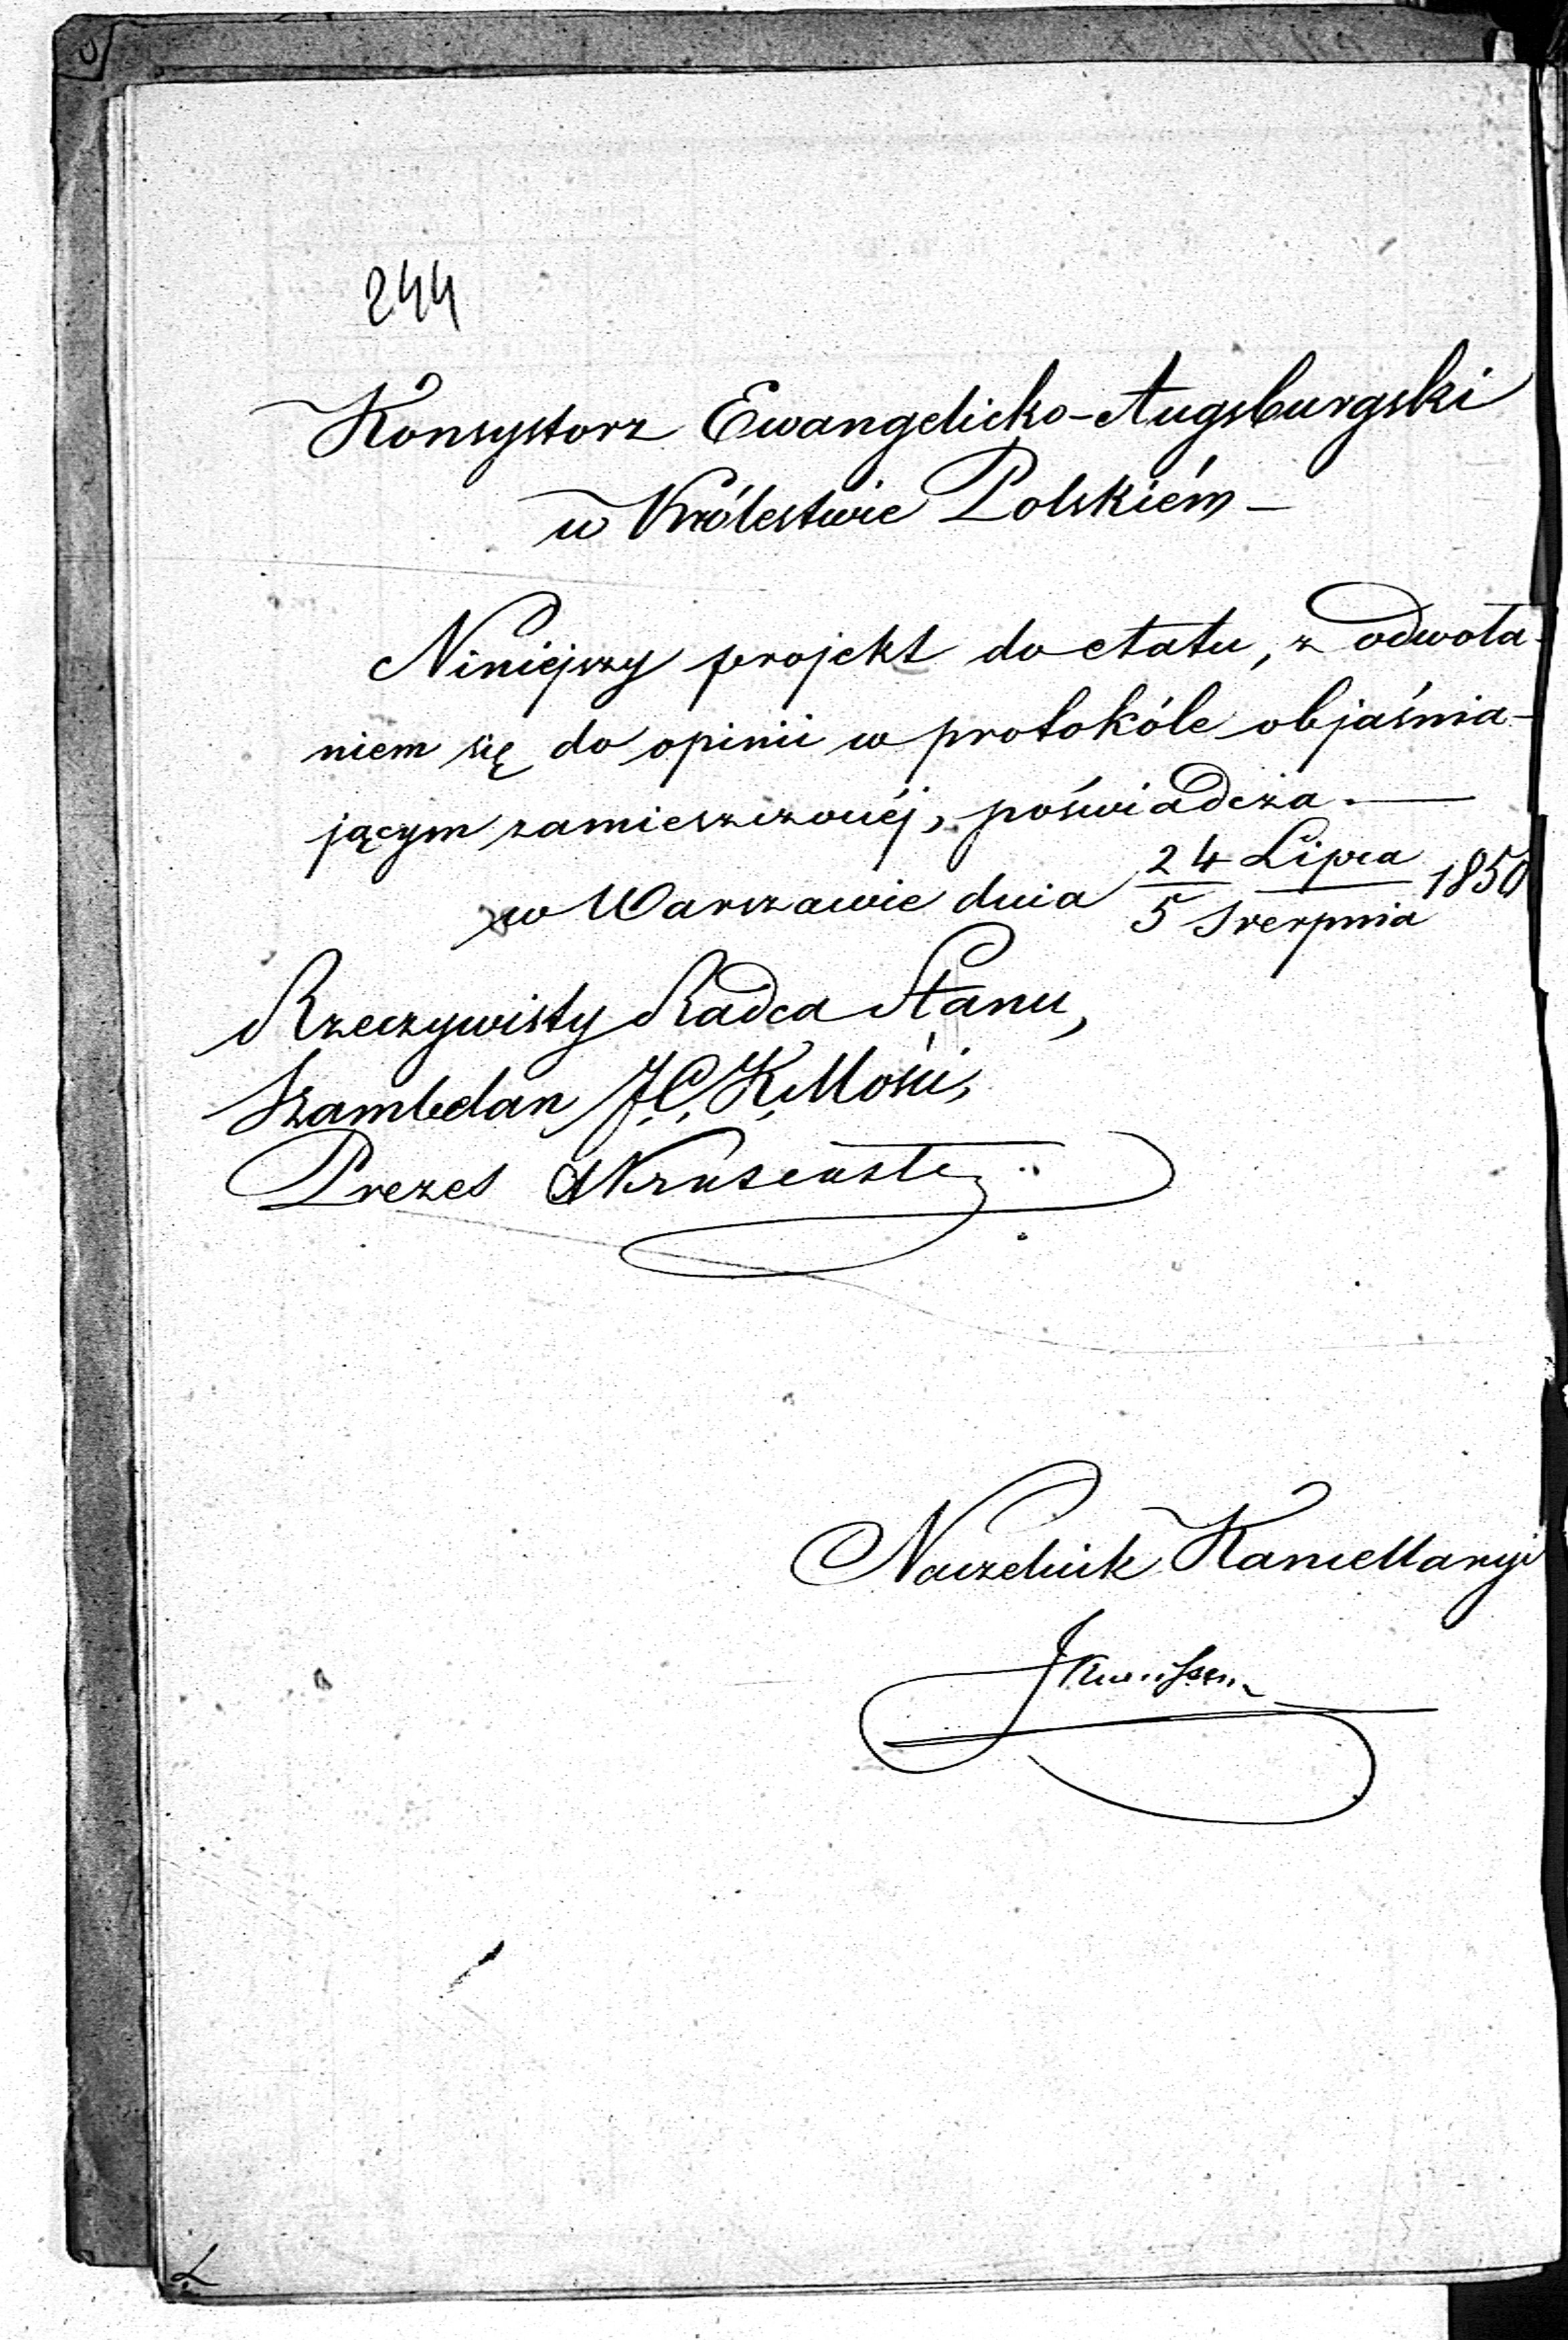 244
Konsystorz Ewangelicko-Augsburgski
w Królestwie Polskiém -
Niniejszy projekt do etatu, z odwoła-
niem się do opinii w protokóle objaśnia-
jącym zamieszczonéj, poświadcza. —
w Warszawie dnia 24 Lipca / 5 Sierpnia 1850
Rzeczywisty Radca Stanu,
Szambelan J.C.K. Mości,
Prezes
Naczelnik Kancellaryi